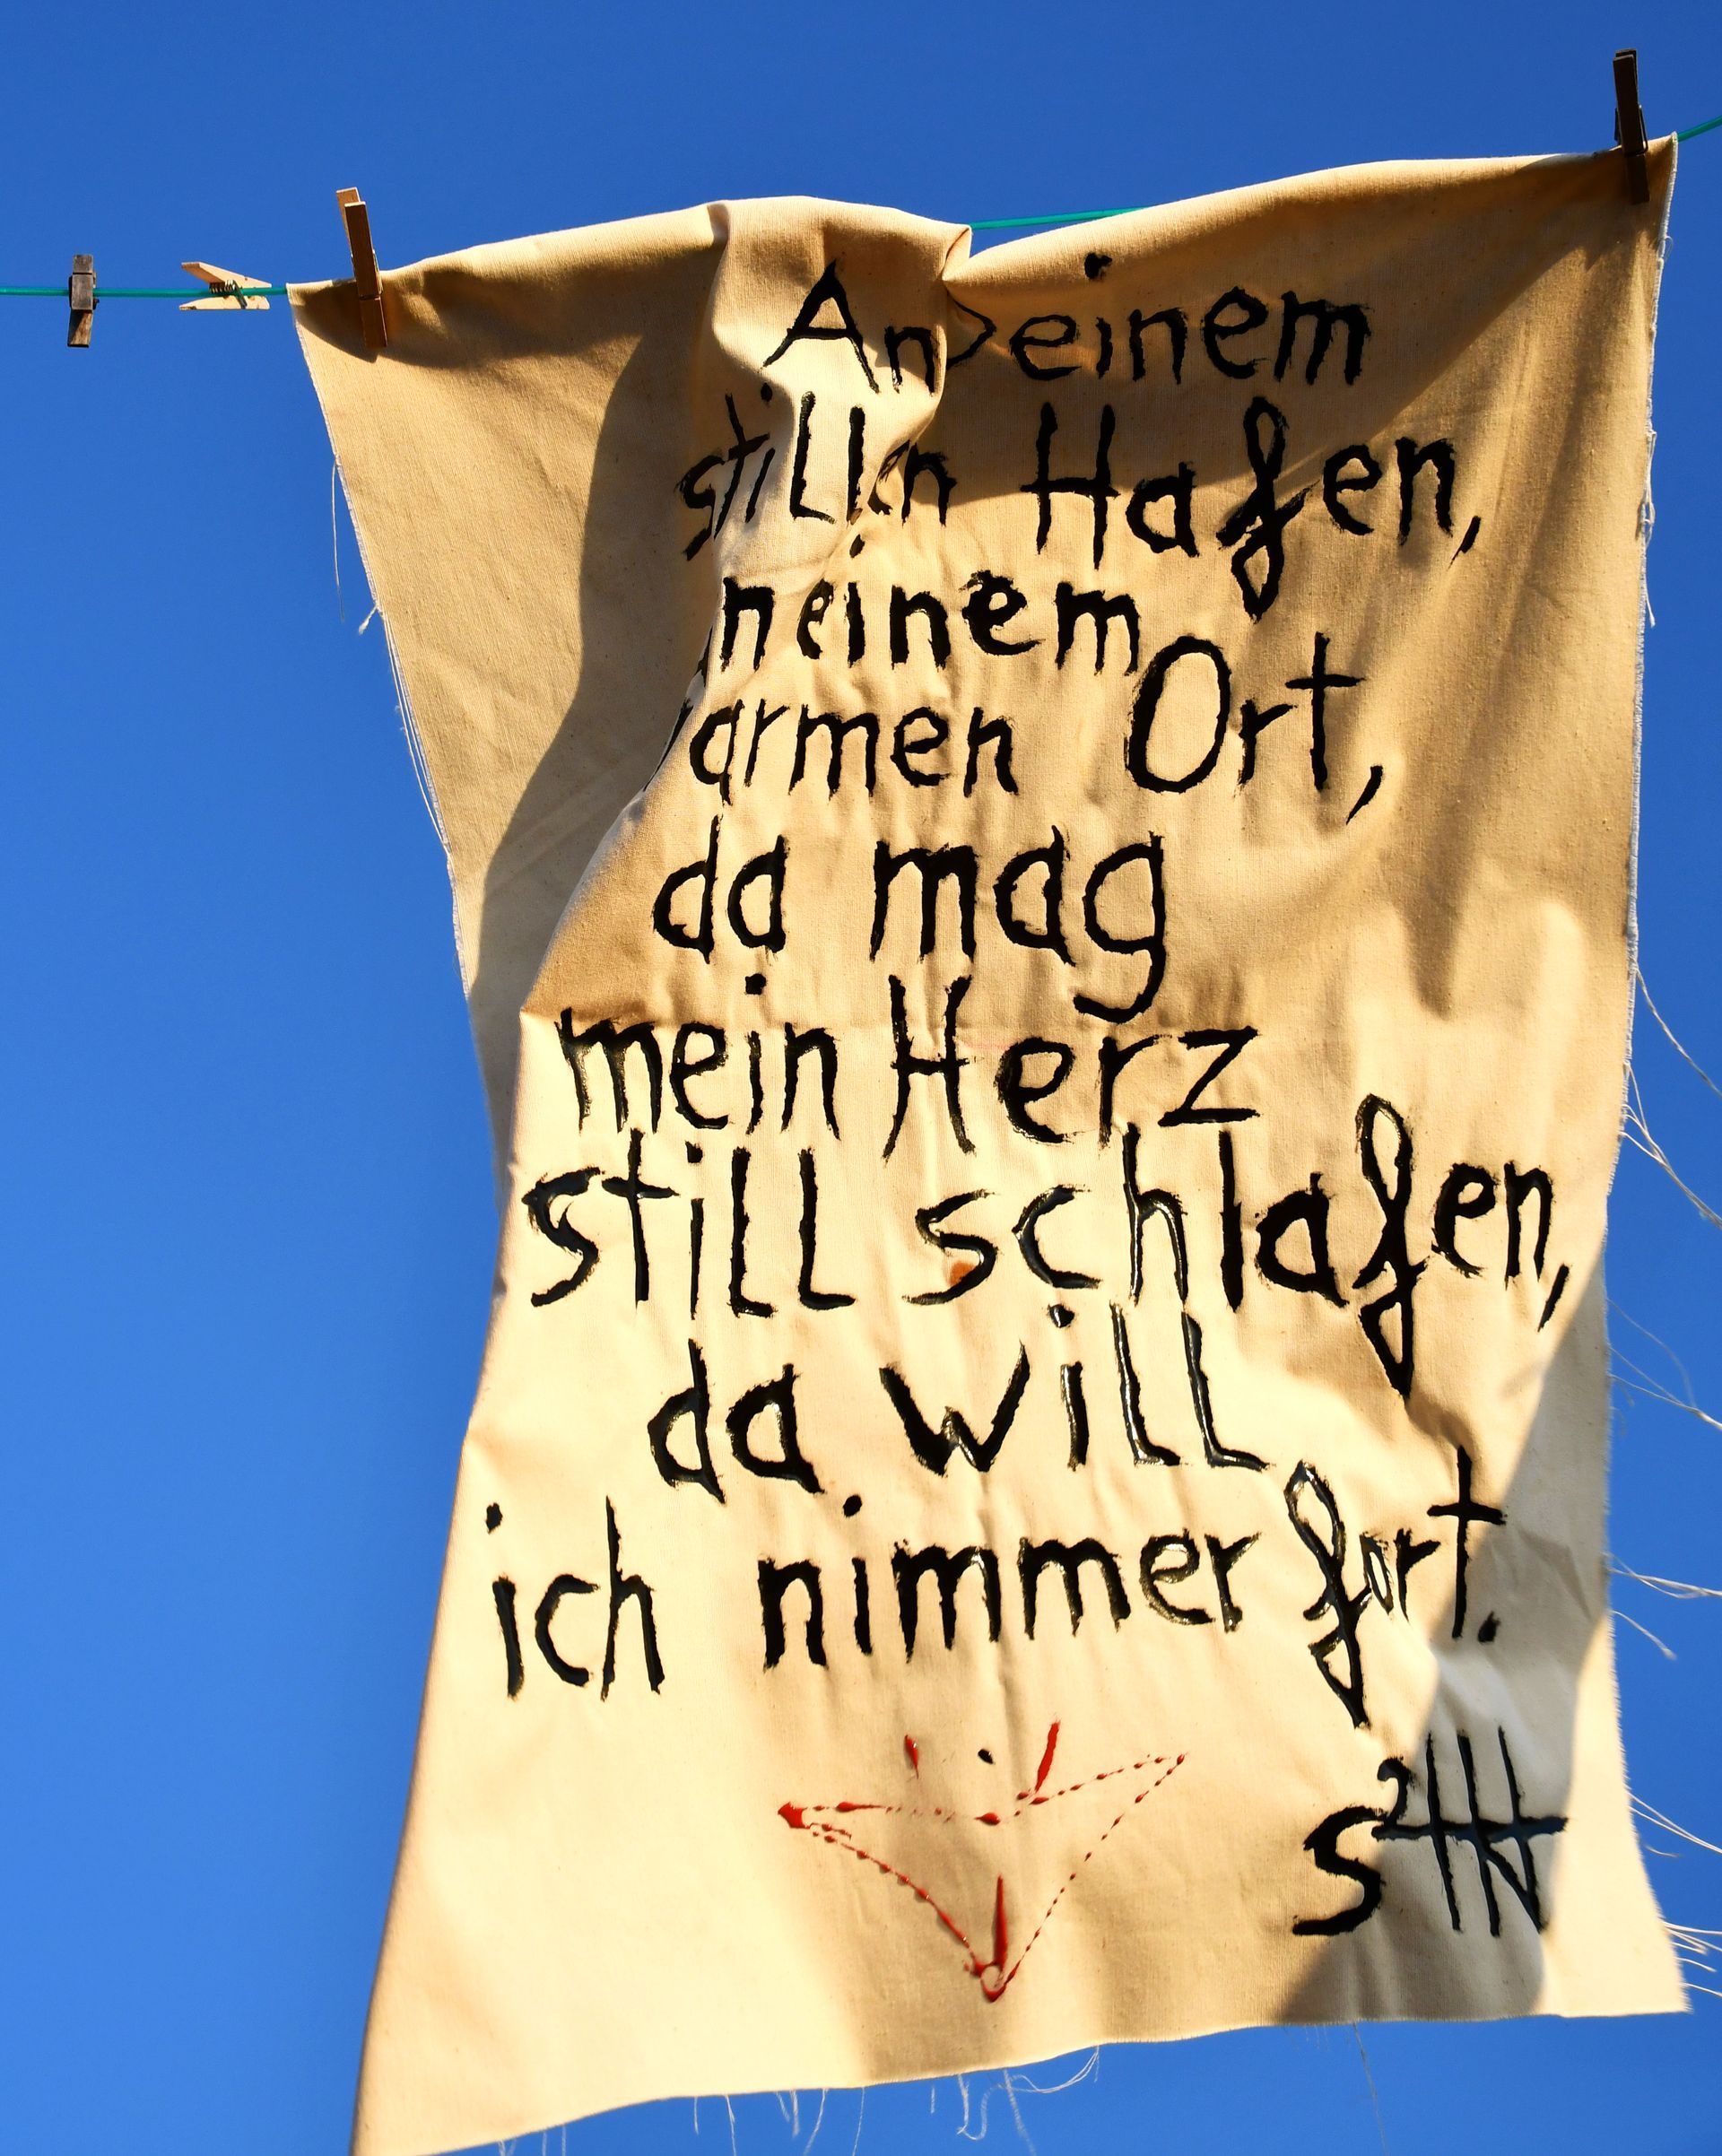 An einem
stillen Hafen,
an einem
warmen Ort,
da mag
mein Herz
still schlafen,
da will
ich nimmer fort.